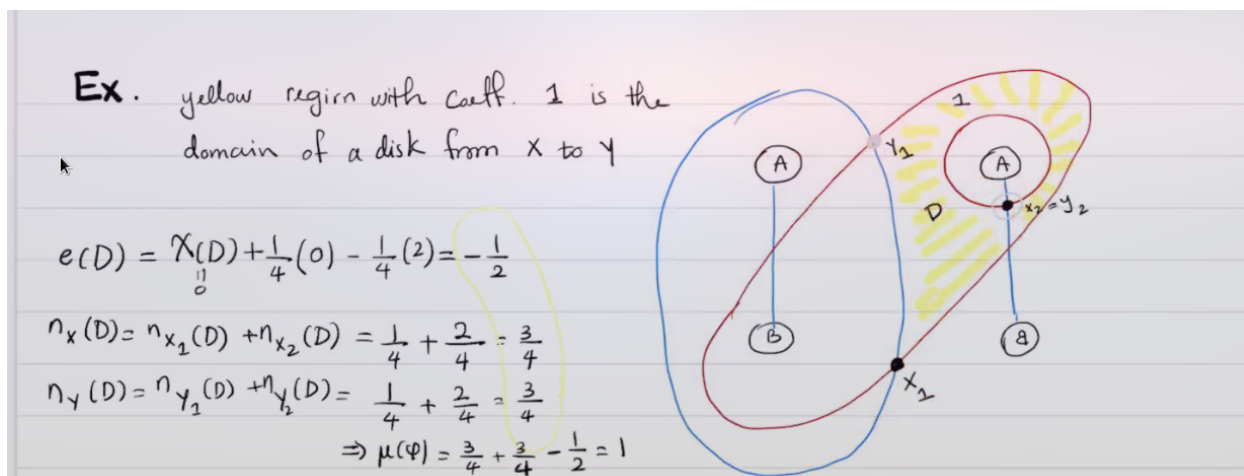 Ex. yellow region with coeff. 1 is the
domain of a disk from x to y
e(D) = χ(D) + 1/4 (0) - 1/4 (2) = - 1/2
=
0
n_x(D) = n_x₁(D) + n_x₂(D) = 1/4 + 2/4 = 3/4
n_y(D) = n_y₁(D) + n_y₂(D) = 1/4 + 2/4 = 3/4
⇒ μ(φ) = 3/4 + 3/4 - 1/2 = 1
1
A
Y₁
A
D
x₂ = y₂
B
B
X₁